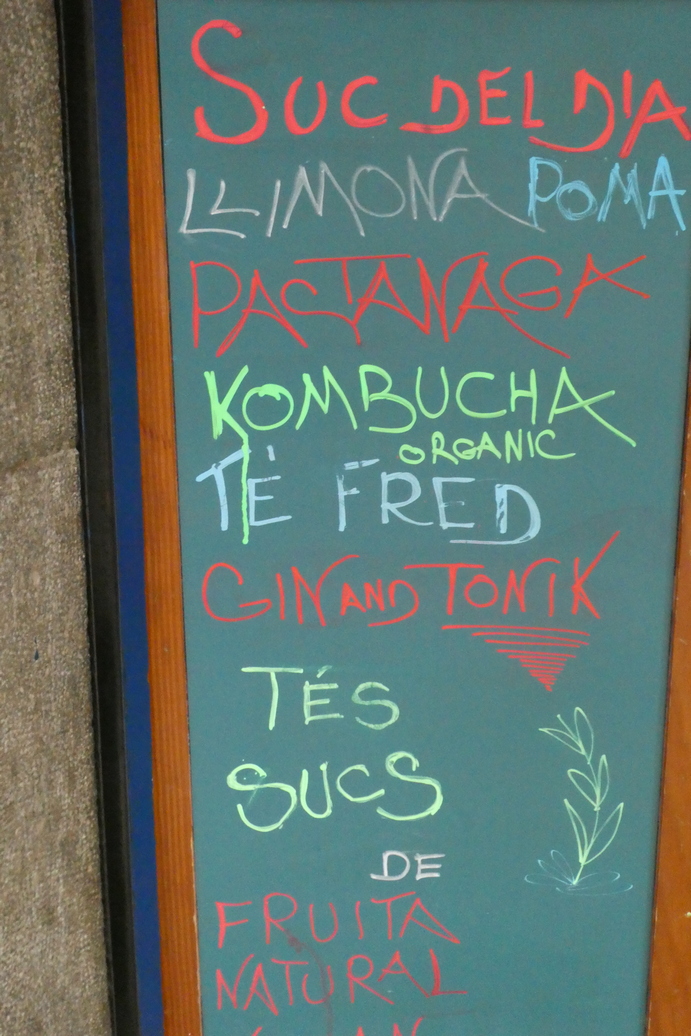 SUC DEL DIA
LLIMONA POMA
PACTANAGA
KOMBUCHA
ORGANIC
TÉ FRED
GIN AND TONIK
TÉS
SUCS
DE
FRUITA
NATURAL